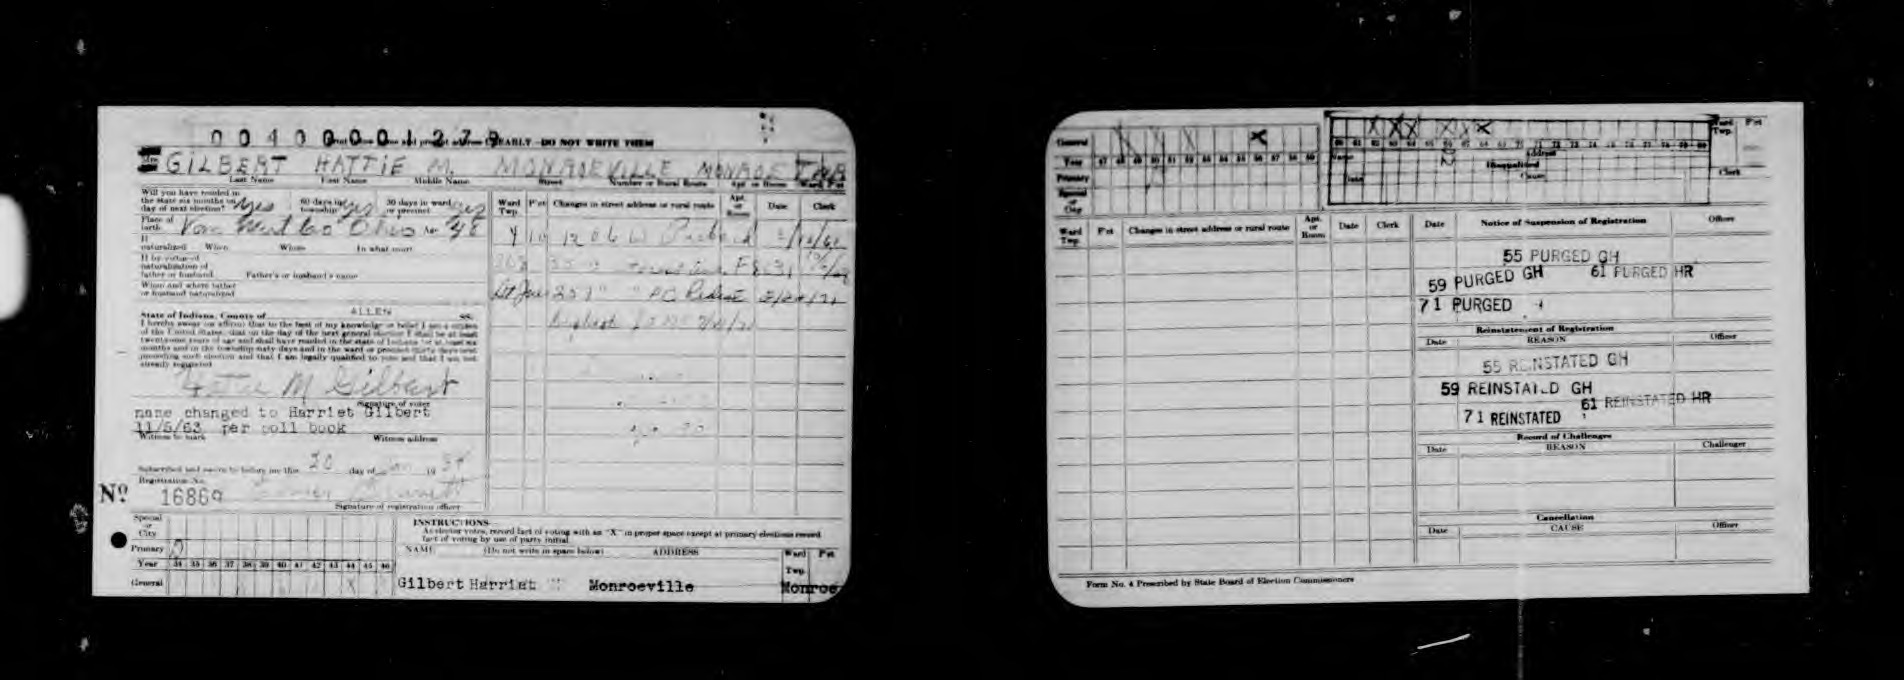 00400001279
CLEARLY - DO NOT WRITE THEM
Mrs GILBERT HATTIE M. MONROEVILLE MONROE
Last Name First Name Middle Name Street Number or Rural Route Apt. or Room Ward P'ct
Will you have resided in
the State six months on
day of next election? Yes 60 days in township? Yes 30 days in ward or precinct? Yes
Place of birth Van Wert Co Ohio Age 48
If naturalized When Where In what court
If by virtue of
naturalization of
father or husband Father's or husband's name
When and where father
or husband naturalized
State of Indiana, County of ALLEN SS.
I hereby swear (or affirm) that to the best of my knowledge or belief I am a citizen
of the United States, that on the day of the next general election I shall be at least
twenty-one years of age and shall have resided in the state of Indiana for at least six
months and in the township sixty days and in the ward or precinct thirty days next
preceding such election and that I am legally qualified to vote and that I am not
already registered
Hattie M Gilbert
Signature of voter
name changed to Harriet Gilbert
11/5/63 per poll book
Witness to mark Witness address
Subscribed and sworn to before me this 20 day of Jan 19 34
Registration No.
No. 16869
Signature of registration officer
Ward Twp. P'ct Changes in street address or rural route Apt. or Room Date Clerk
1206 W
Special or City
Primary
Year 34 35 36 37 38 39 40 41 42 43 44 45 46
General X
INSTRUCTIONS
As elector votes, record fact of voting with an "X" in proper space except at primary elections record
fact of voting by use of party initial
NAME (Do not write in space below) ADDRESS Ward Twp. P'ct
Gilbert Harriet M Monroeville Monroe
General
Year 47 48 49 50 51 52 53 54 55 56 57 58 59
Primary
Special or City
60 61 62 63 64 65 66 67 68 69 70 71 72 73 74 75 76 77 78 79 80
Name Address
Disqualified
Date Cause
Ward Twp. P'ct
Clerk
Ward Twp. P'ct Changes in street address or rural route Apt. or Room Date Clerk
Date Notice of Suspension of Registration Officer
55 PURGED GH
59 PURGED GH 61 PURGED HR
71 PURGED
Reinstatement of Registration
Date REASON Officer
55 REINSTATED GH
59 REINSTATED GH
61 REINSTATED HR
71 REINSTATED
Record of Challenges
Date REASON Challenger
Cancellation
Date CAUSE Officer
Form No. 4 Prescribed by State Board of Election Commissioners